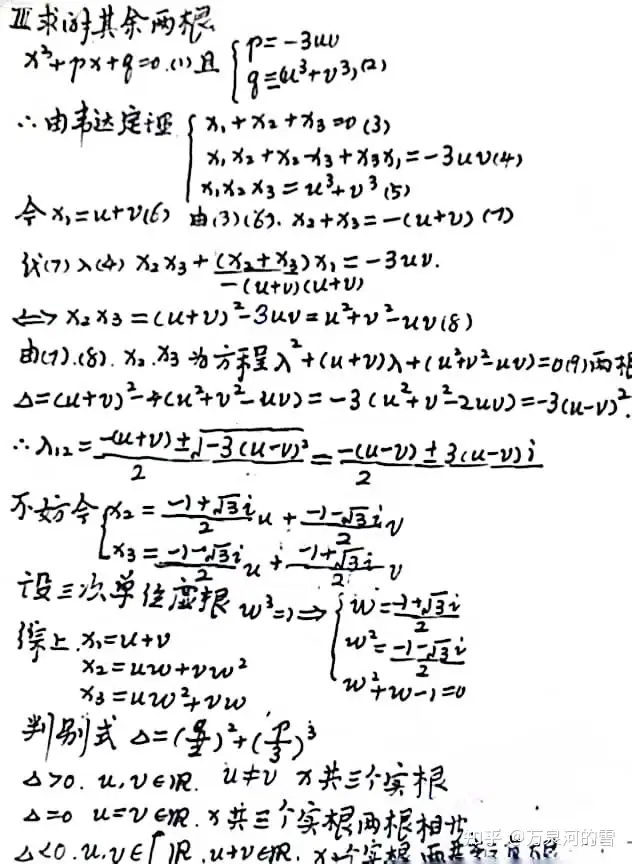 Ⅲ 求解其余两根
x³+px+q=0.(1)且{p=-3uv
q=-(u³+v³)(2)
∴由韦达定理{x₁+x₂+x₃=0(3)
x₁x₂+x₂x₃+x₃x₁=-3uv(4)
x₁x₂x₃=u³+v³(5)
令x₁=u+v(6) 由(3)(6). x₂+x₃=-(u+v) (7)
代(7)入(4) x₂x₃+(x₂+x₃)x₁=-3uv.
-(u+v)(u+v)
⇔x₂x₃=(u+v)²-3uv=u²+v²-uv(8)
由(7).(8). x₂.x₃为方程λ²+(u+v)λ+(u²+v²-uv)=0(9)两根
Δ=(u+v)²-4(u²+v²-uv)=-3(u²+v²-2uv)=-3(u-v)².
∴λ₁,₂=(-(u+v)±√(-3(u-v)²))/2=(-(u-v)±3(u-v)i)/2
不妨令{x₂=(-1+√3i)/2 u+(-1-√3i)/2 v
x₃=(-1-√3i)/2 u+(-1+√3i)/2 v
设三次单位虚根 w³=1⇒{w=(-1+√3i)/2
w²=(-1-√3i)/2
w²+w-1=0
综上.x₁=u+v
x₂=uw+vw²
x₃=uw²+vw
判别式 Δ=(q/2)²+(p/3)³
Δ>0. u,v∈R. u≠v x共三个实根
Δ=0 u=v∈R. x共三个实根两根相
Δ<0. u,v∈ R. u+v∈R. x 个实根
知乎 @万泉河的雪